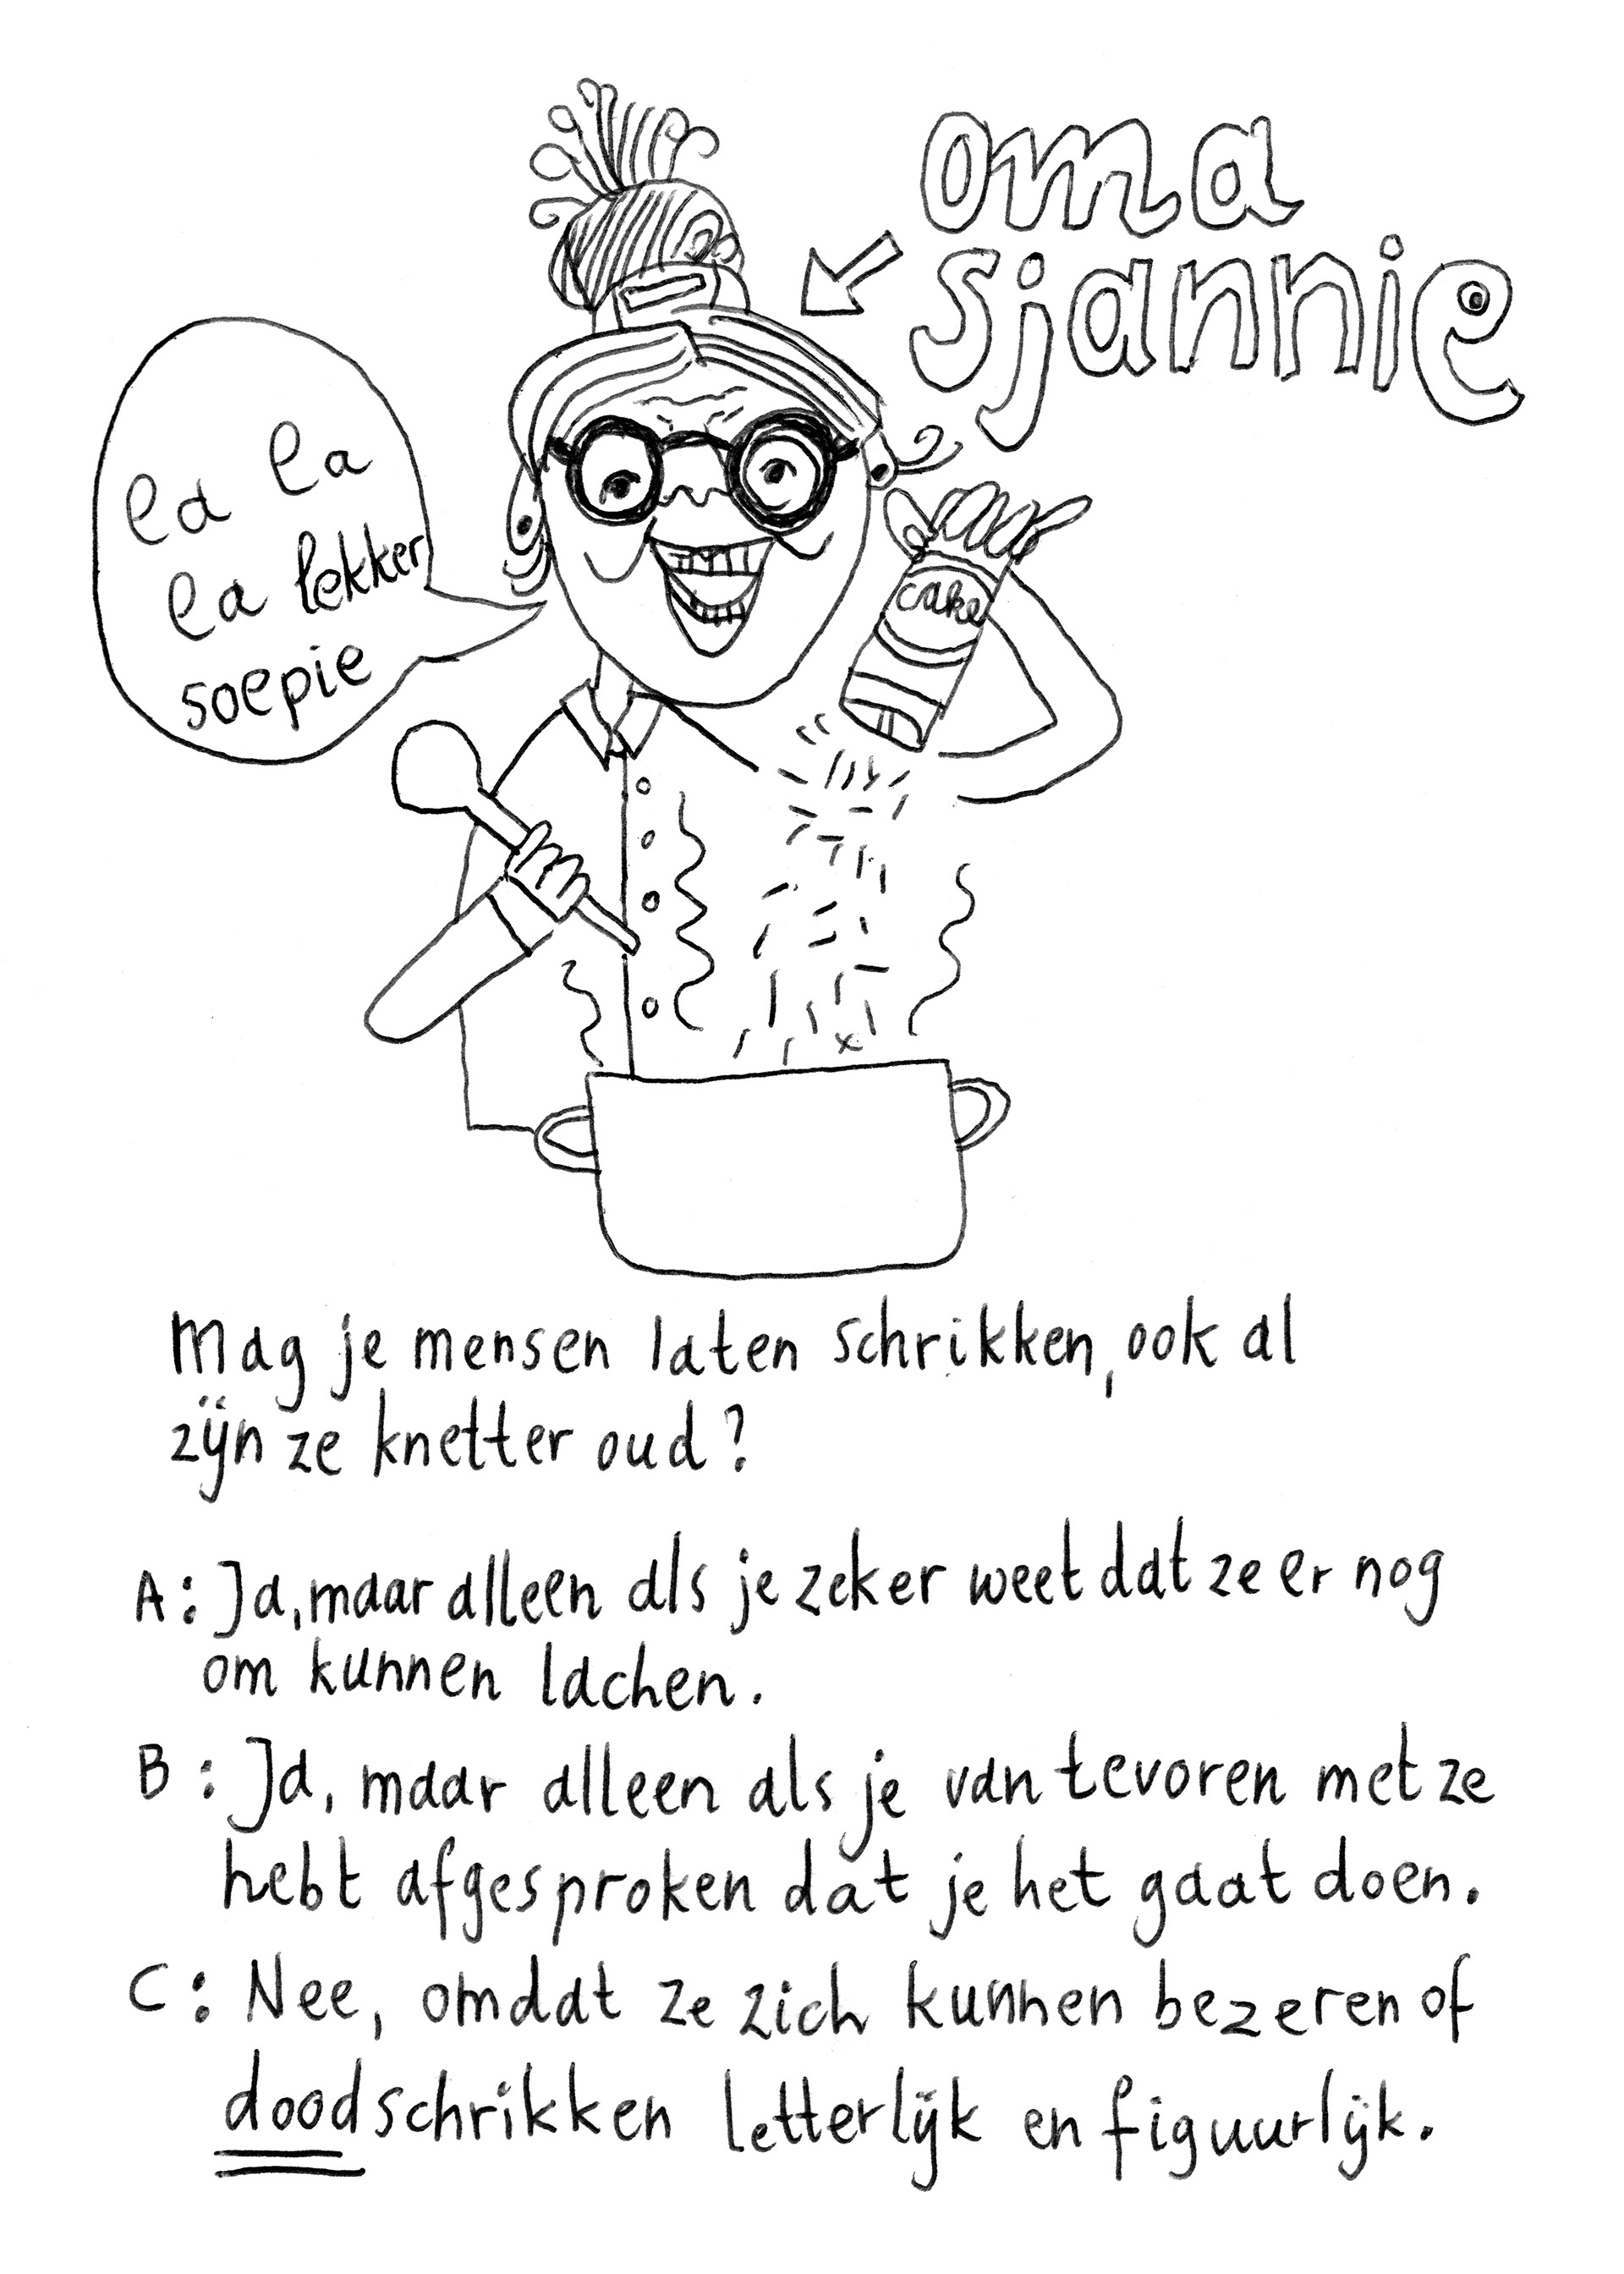 oma
sjannie
la la
la lekker
soepie
cake
Mag je mensen laten schrikken, ook al
zijn ze knetter oud?
A: Ja, maar alleen als je zeker weet dat ze er nog
om kunnen lachen.
B: Ja, maar alleen als je van tevoren met ze
hebt afgesproken dat je het gaat doen.
C: Nee, omdat ze zich kunnen bezeren of
doodschrikken letterlijk en figuurlijk.